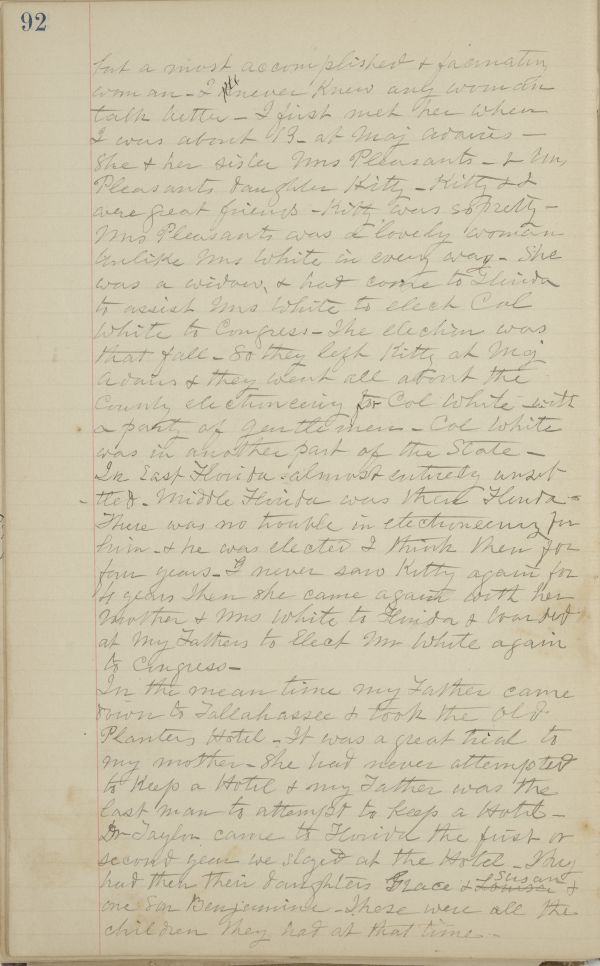 92
but a most accomplished & facinating
woman - I never knew any woman
talk better - I first met her when
I was about 13 - at Maj Adairs -
She & her sister Mrs Pleasants - & Mrs
Pleasants daughter Kitty - Kitty & I
were great friends - Kitty was so pretty -
Mrs Pleasants was a lovely woman
unlike Mrs White in every way - She
was a widow, & had come to Florida
to assist Mrs White to elect Col
White to Congress - The election was
that fall - So they left Kitty at Maj
Adairs & they went all about the
County electioneering for Col White with
a party of gentlemen - Col White
was in another part of the State -
In East Florida almost entirely unset
tled - Middle Florida was then Florida -
There was no trouble in electioneering for
him - & he was elected I think then for
four years - I never saw Kitty again for
4 years then she came again with her
Mother & Mrs White to Florida & boarded
at My Fathers to Elect Mr White again
to Congress -
In the mean time my Father came
down to Tallahassee & took the Old
Planters Hotel - It was a great trial to
my mother - She had never attempted
to keep a Hotel & my Father was the
last man to attempt to keep a Hotel -
Dr Taylor came to Florida the first or
second year we stayed at the Hotel - They
had then their daughters Grace & Louisa Susan &
one Son Benjamine - These were all the
children they had at that time -